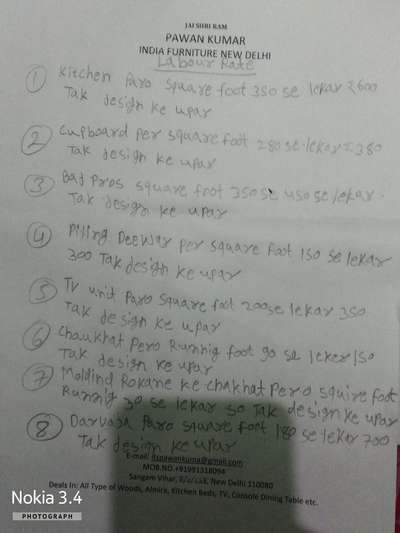 JAI SHRI RAM
PAWAN KUMAR
INDIA FURNITURE NEW DELHI
Labour Rate
① Kitchen Paro Square foot 350 se lekar ₹600
Tak design ke upar
② Cupboard per square foot 280 se lekar 380
Tak design ke upar
③ Bad Pros square foot 350 se 450 se lekar
Tak design ke upar
④ Piling Deewar per square foot 150 se lekar
300 Tak design ke upar
⑤ TV unit Paro Square foot 200 se lekar 350
Tak design ke upar
⑥ Chaukhat Pero Runnig foot 90 se leker 150
Tak design ke upar
⑦ Molding Rokane ke chakhat Pero squire foot
Running 30 se lekar 50 Tak design ke upar
⑧ Darvaja Paro square foot 180 se lekar 700
Tak design ke upar
E-mail: itspawankuma@gmail.com
MOB.NO.+91991318094
Sangam Vihar, New Delhi 110080
Deals In: All Type of Woods, Almira, Kitchen Beds, TV, Console Dining Table etc.
Nokia 3.4
PHOTOGRAPH